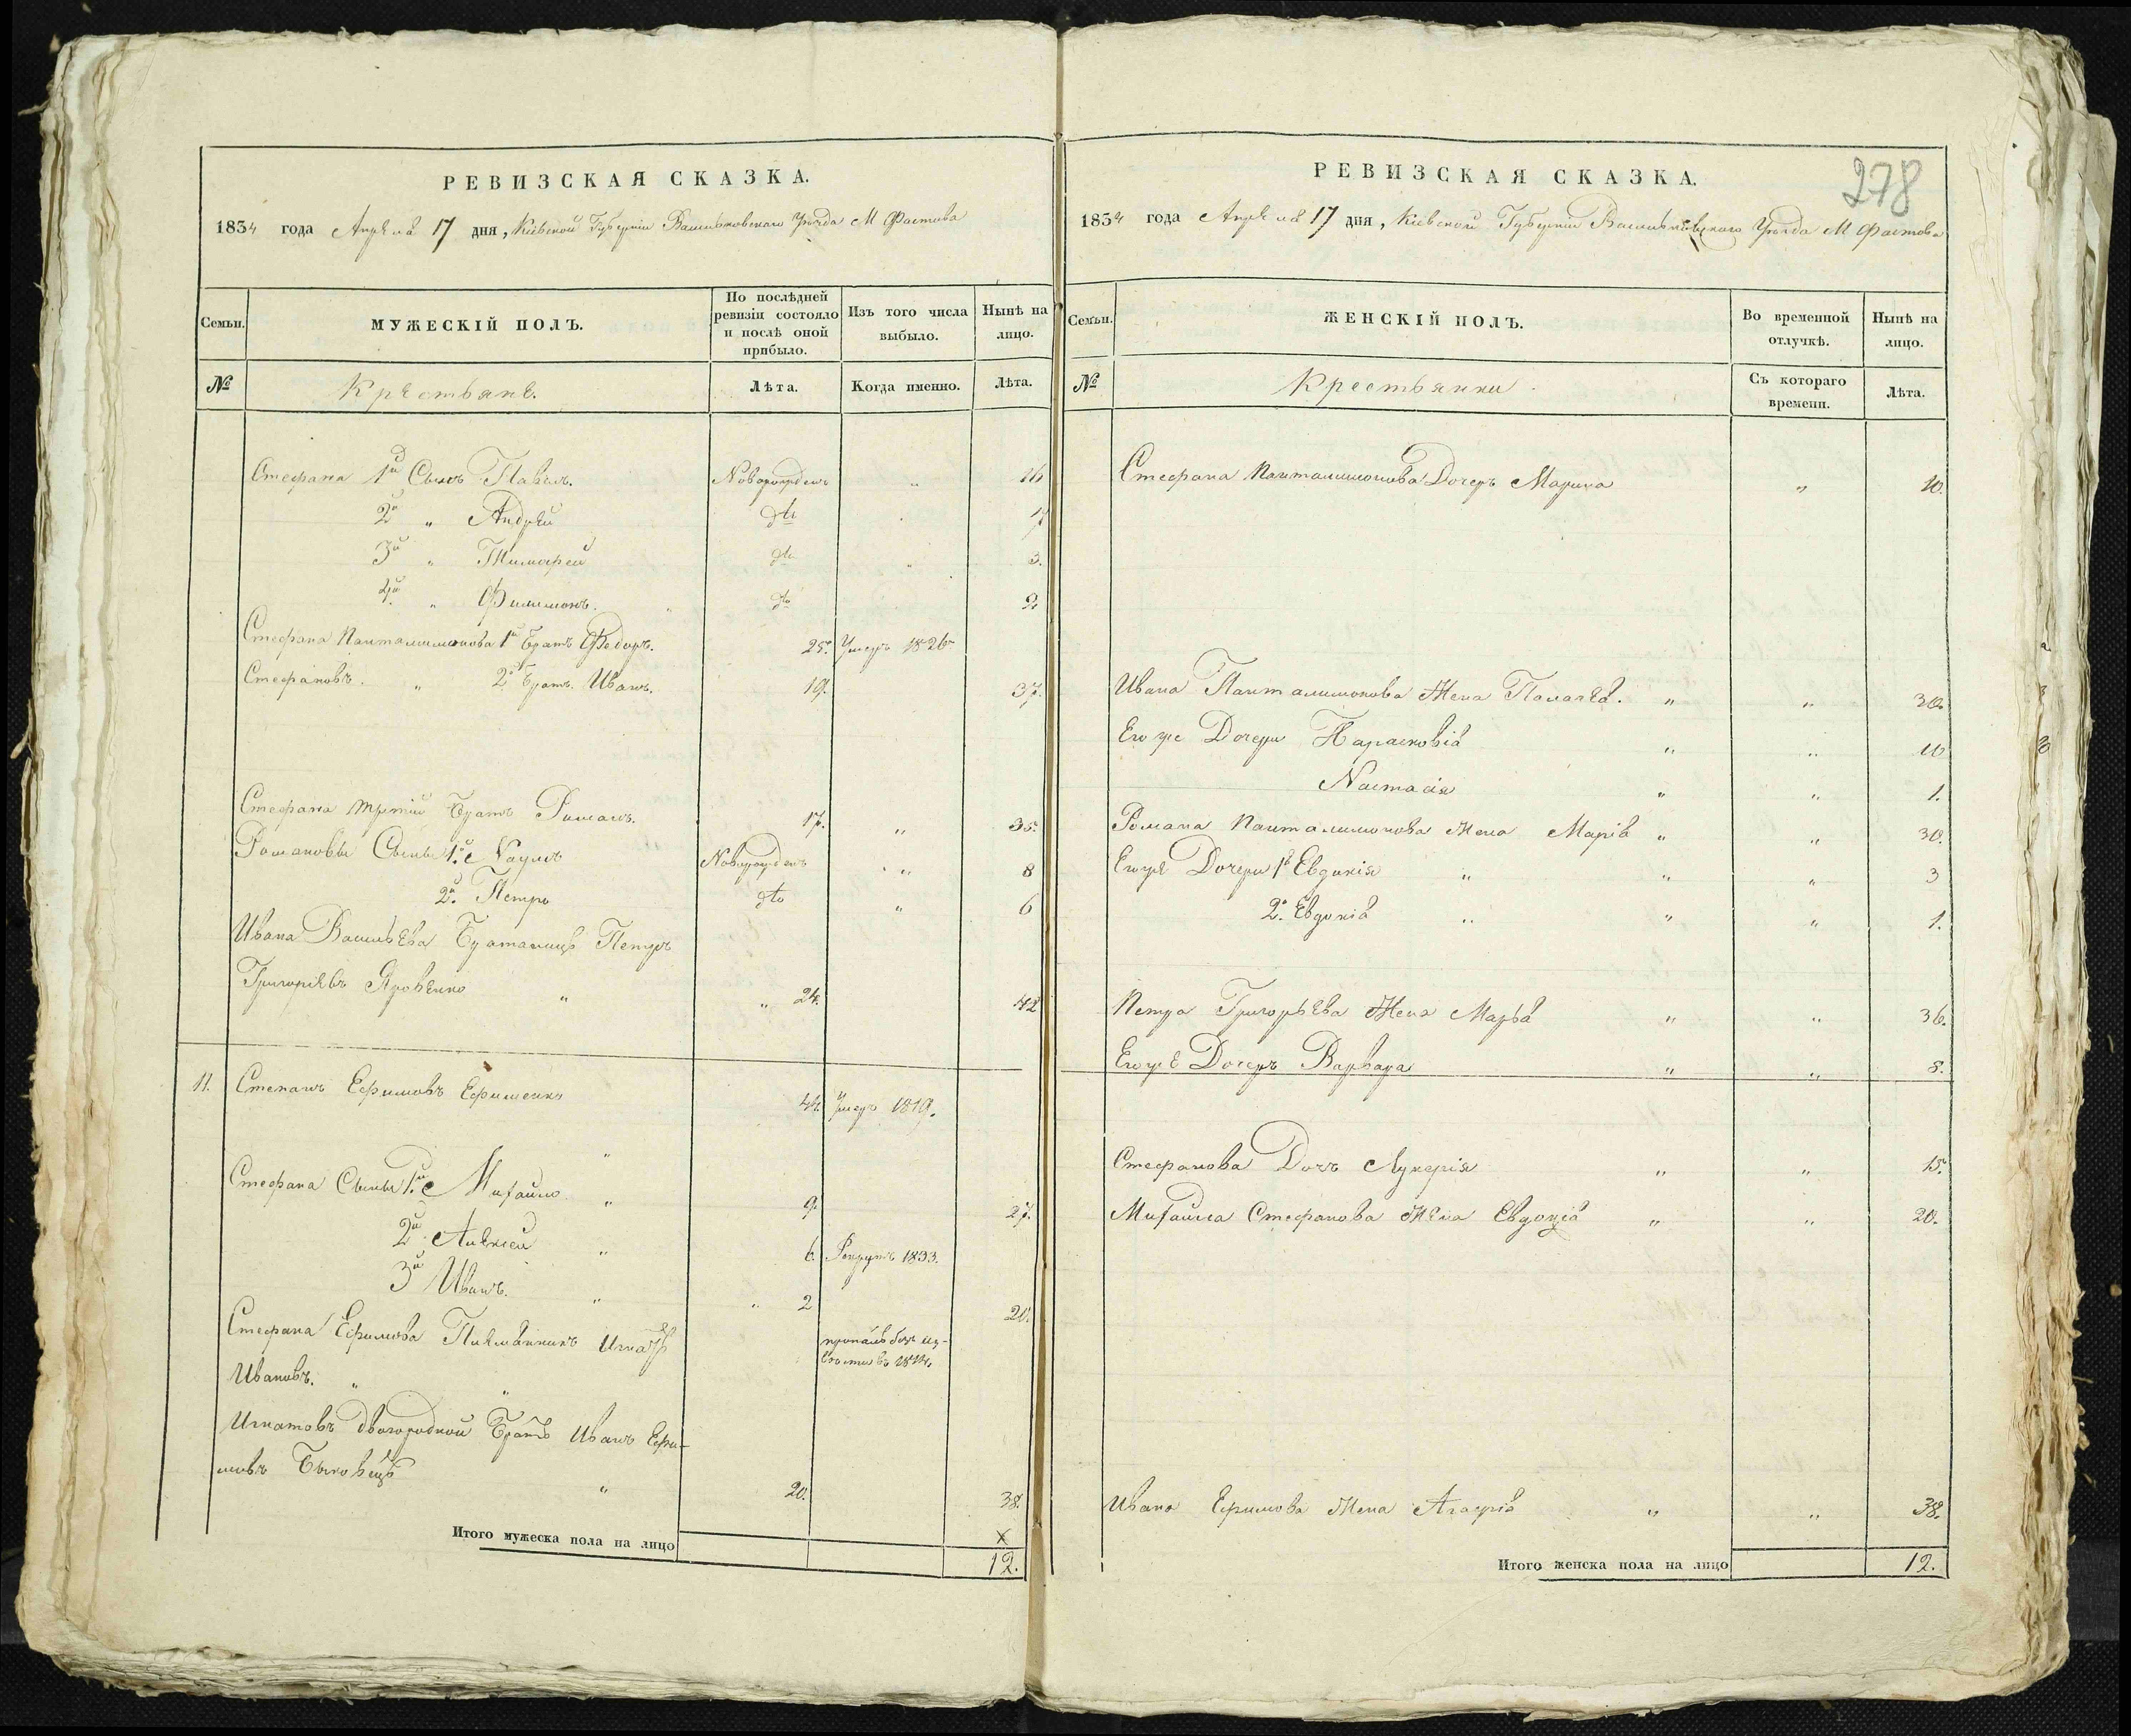 РЕВИЗСКАЯ СКАЗКА.
1834 года Апреля 17 дня, Кіевской Губерніи Васильковскаго Уезда М Фастова
Семьи.
МУЖЕСКІЙ ПОЛЪ.
По послѣдней ревизіи состояло и послѣ оной прибыло.
Изъ того числа выбыло.
Нынѣ на лицо.
№
Крестьяне.
Лѣта.
Когда именно.
Лѣта.
Стефана 1й Сынъ Павелъ. Новорожденъ „ 16
2й „ Андрей dto 7
3й „ Тимофей dto „ 3.
4й „ Филимонъ. dto 2
Стефана Панталимонова 1й Братъ Федоръ. 25. Умеръ 1826
Стефановъ. „ 2й Братъ Иванъ. 19. 37.
Стефана третій Братъ Романъ. 17. „ 35.
Романовы Сыны 1й Наумъ Новорожденъ „ 8
2й. Петро dto „ 6
Ивана Васильева Братаницъ Петръ
Григорьевъ Яровенко „ „ 24. 42
11. Степанъ Ефимовъ Ефименко 44. Умеръ 1819.
Стефана Сыны 1й Михайло „ 9. 27.
2й Алексей „ 6. Рекрутъ 1833.
3й Иванъ. „ „ 2 20.
Стефана Ефимова Племянникъ Игнатъ
пропалъ безъ из-
вести въ 1814.
Ивановъ. „ „
Игнатовъ двоюродной Братъ Иванъ Ефи-
мовъ Быковецъ „ 20. 38.
Итого мужеска пола на лицо
12.
278
РЕВИЗСКАЯ СКАЗКА.
1834 года Апреля 17 дня, Кіевской Губерніи Васильковскаго Уезда М Фастова
Семьи.
ЖЕНСКІЙ ПОЛЪ.
Во временной отлучкѣ.
Нынѣ на лицо.
№
Крестьянки.
Съ котораго времени.
Лѣта.
Стефана Панталимонова Дочерь Марина „ 10.
Ивана Панталимонова Жена Пелагея. „ „ 30.
Его же Дочери Парасковія „ „ 10
Настасія „ „ 1.
Романа Панталимонова Жена Марія „ „ 30.
Егоже Дочери 1я Евдокія „ „ „ 3
2я. Евдокія „ „ „ 1.
Петра Григорьева Жена Марья „ „ 36.
Егоже Дочерь Варвара „ „ 8.
Стефанова Дочь Лукерія „ „ 15.
Михаила Стефанова Жена Евдокія „ „ 20.
Ивана Ефимова Жена Агафія „ „ 38.
Итого женска пола на лицо
12.